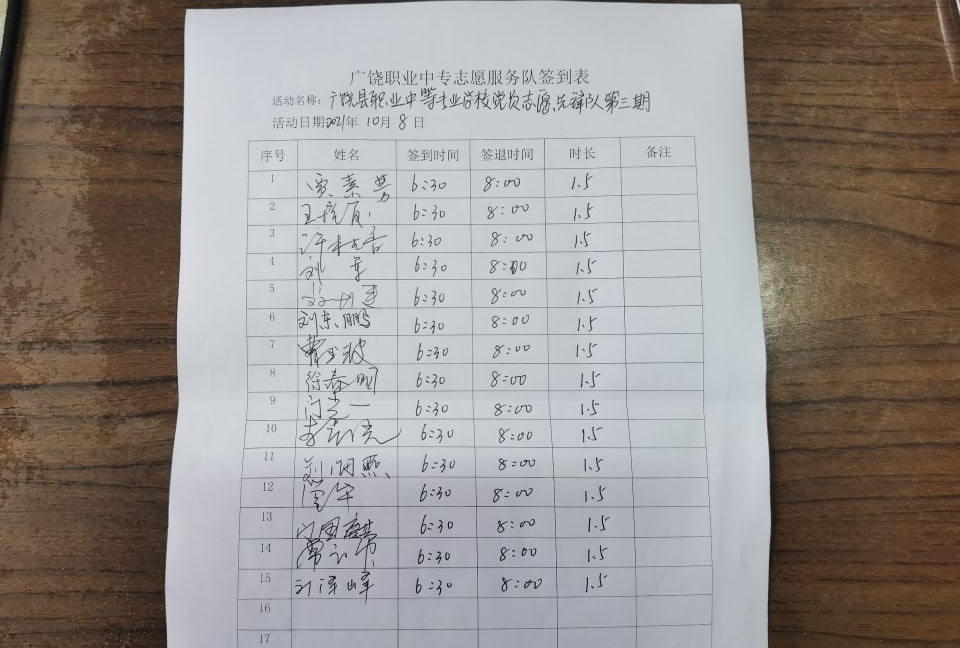 广饶职业中专志愿服务队签到表
活动名称：广饶县职业中等专业学校党员志愿先锋队第三期
活动日期2021年 10月 8 日
序号 姓名 签到时间 签退时间 时长 备注
1 贾素芳 6:30 8:00 1.5
2 6:30 8:00 1.5
3 6:30 8:00 1.5
4 刘军 6:30 8:00 1.5
5 6:30 8:00 1.5
6 刘东鹏 6:30 8:00 1.5
7 6:30 8:00 1.5
8 徐春明 6:30 8:00 1.5
9 6:30 8:00 1.5
10 6:30 8:00 1.5
11 刘明熙 6:30 8:00 1.5
12 6:30 8:00 1.5
13 6:30 8:00 1.5
14 6:30 8:00 1.5
15 6:30 8:00 1.5
16
17